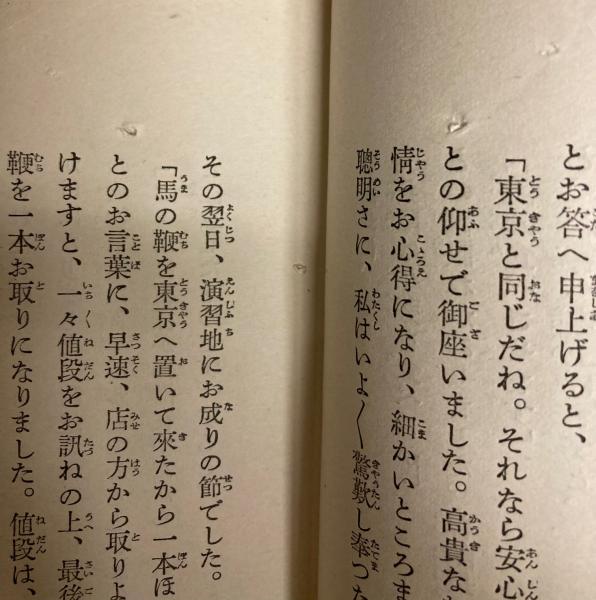 とお答へ申上げると、
「東京と同じだね。それなら安心
との仰せで御座いました。高貴な
情をお心得になり、細かいところま
聰明さに、私はいよ〱驚歎し奉つた
その翌日、演習地にお成りの節でした。
「馬の鞭を東京へ置いて來たから一本ほ
とのお言葉に、早速、店の方から取りよ
けますと、一々値段をお訊ねの上、最後
鞭を一本お取りになりました。値段は、